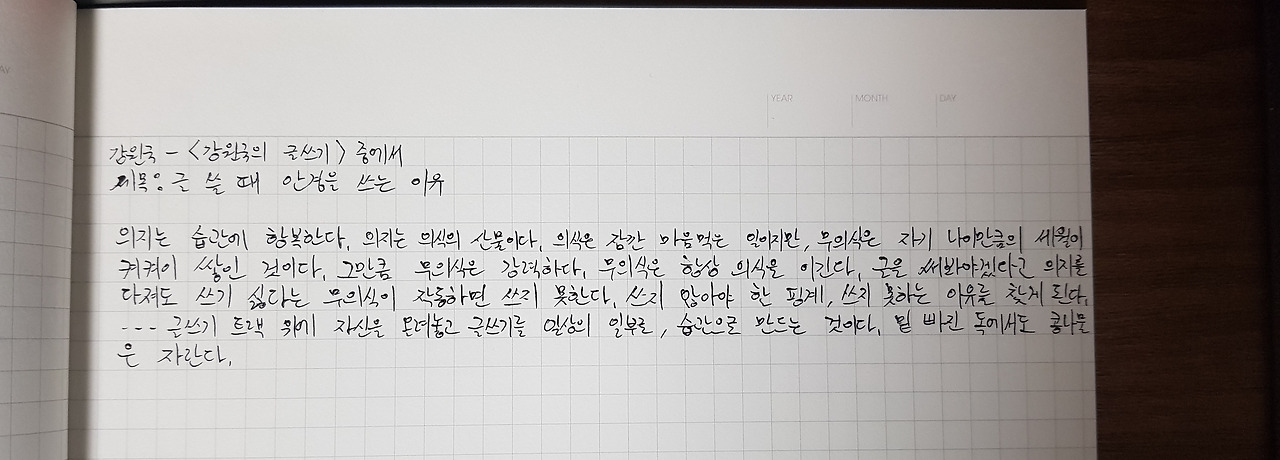 AY
YEAR MONTH DAY
강원국 - <강원국의 글쓰기> 중에서
제목: 글 쓸 때 안경을 쓰는 이유
의지는 습관에 항복한다. 의지는 의식의 산물이다. 의식은 잠깐 마음먹는 일이지만, 무의식은 자기 나이만큼의 세월이
켜켜이 쌓인 것이다. 그만큼 무의식은 강력하다. 무의식은 항상 의식을 이긴다. 글을 써봐야겠다고 의지를
다져도 쓰기 싫다는 무의식이 작동하면 쓰지 못한다. 쓰지 않아야 한 핑계, 쓰지 못하는 이유를 찾게 된다.
--- 글쓰기 트랙 위에 자신을 올려놓고 글쓰기를 일상의 일부로, 습관으로 만드는 것이다. 밑 빠진 독에서도 콩나물
은 자란다.